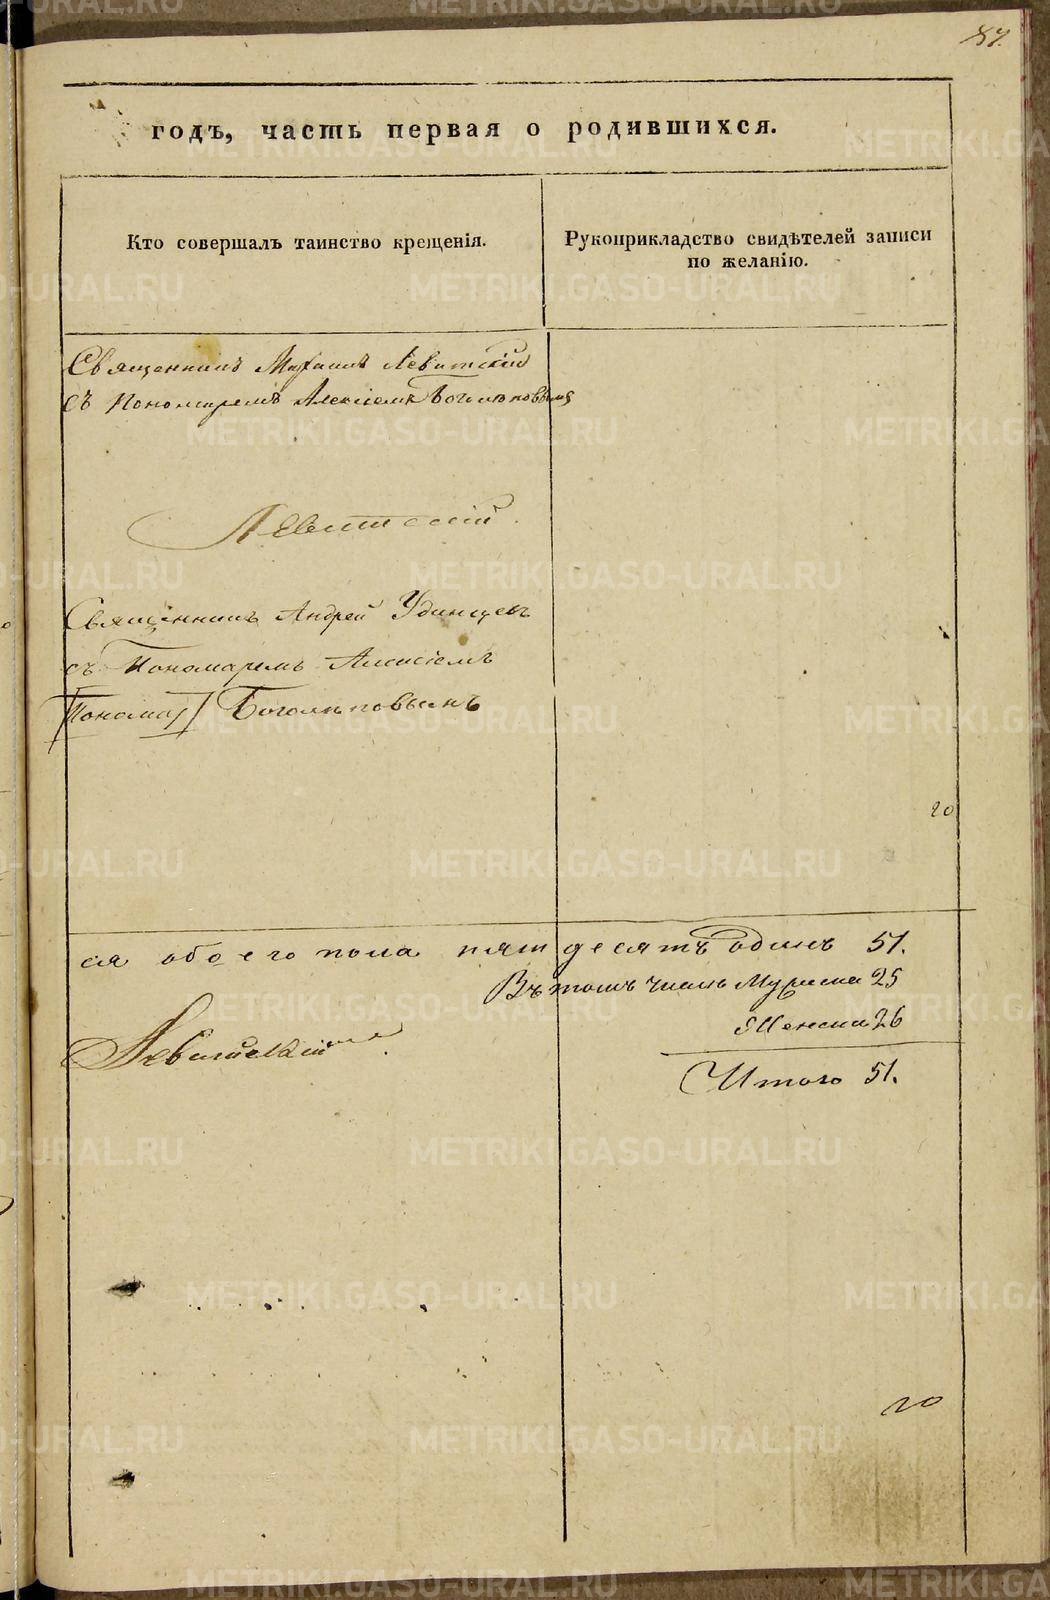 87.
годъ, часть первая о родившихся.
Кто совершалъ таинство крещенія.
Рукоприкладство свидѣтелей записи
по желанію.
Священникъ Михаилъ Левитскій
съ Пономаремъ Алексіемъ Боголѣповымъ
Левитскій.
Священникъ Андрей Удинцевъ
съ Пономаремъ Алексіемъ
Боголѣповымъ
го
ся обоего пола пятьдесятъ одинъ 51.
Въ томъ числѣ Мужеска 25
Женска 26
Левитскій
Итого 51.
го
METRIKI.GASO-URAL.RU